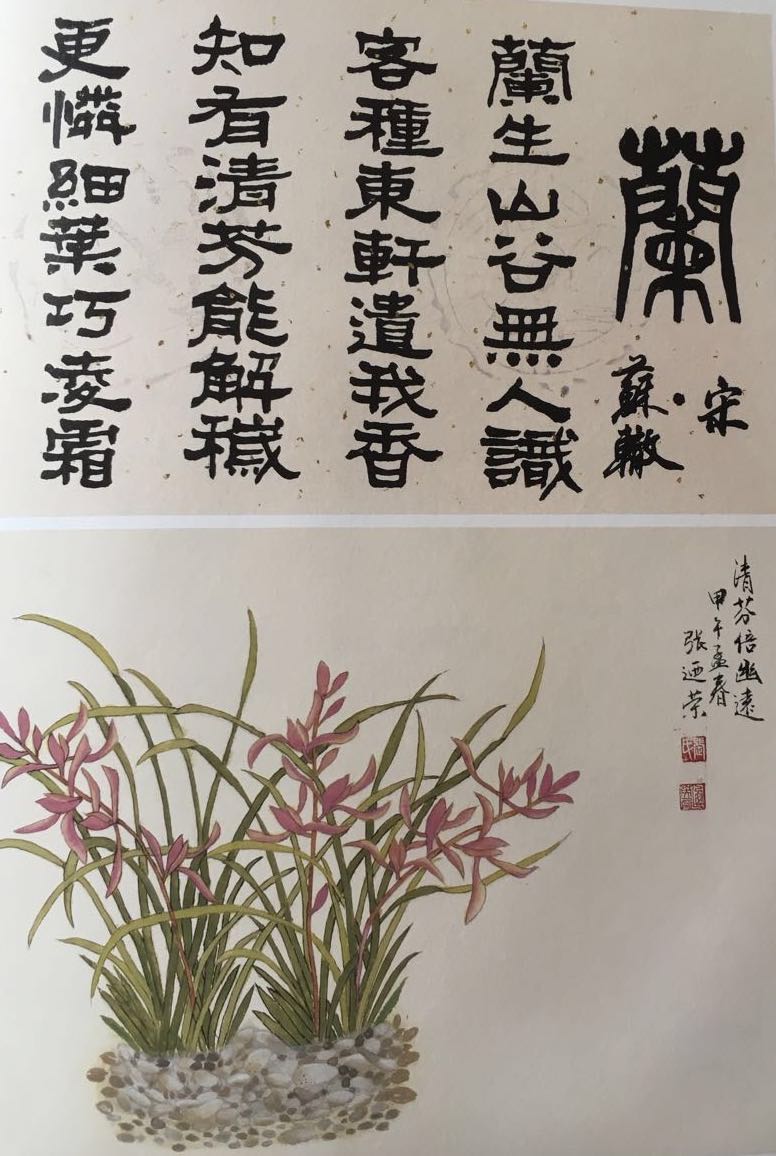 蘭
宋·蘇轍
蘭生山谷無人識
客種東軒遺我香
知有清芳能解穢
更憐細葉巧凌霜
清芬倍幽遠
甲午孟春
張迺荣